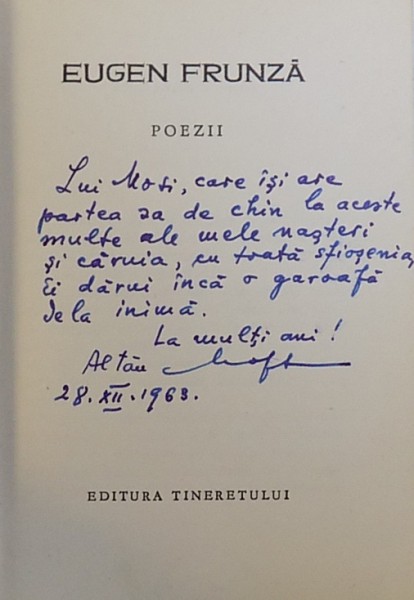 EUGEN FRUNZĂ
POEZII
Lui Mosi, care își are
partea sa de chin la aceste
multe ale mele nașteri
și căruia, cu toată sfioșenia,
îi dărui încă o garoafă
de la inimă.
La mulți ani!
Al tău
28.XII.1963.
EDITURA TINERETULUI